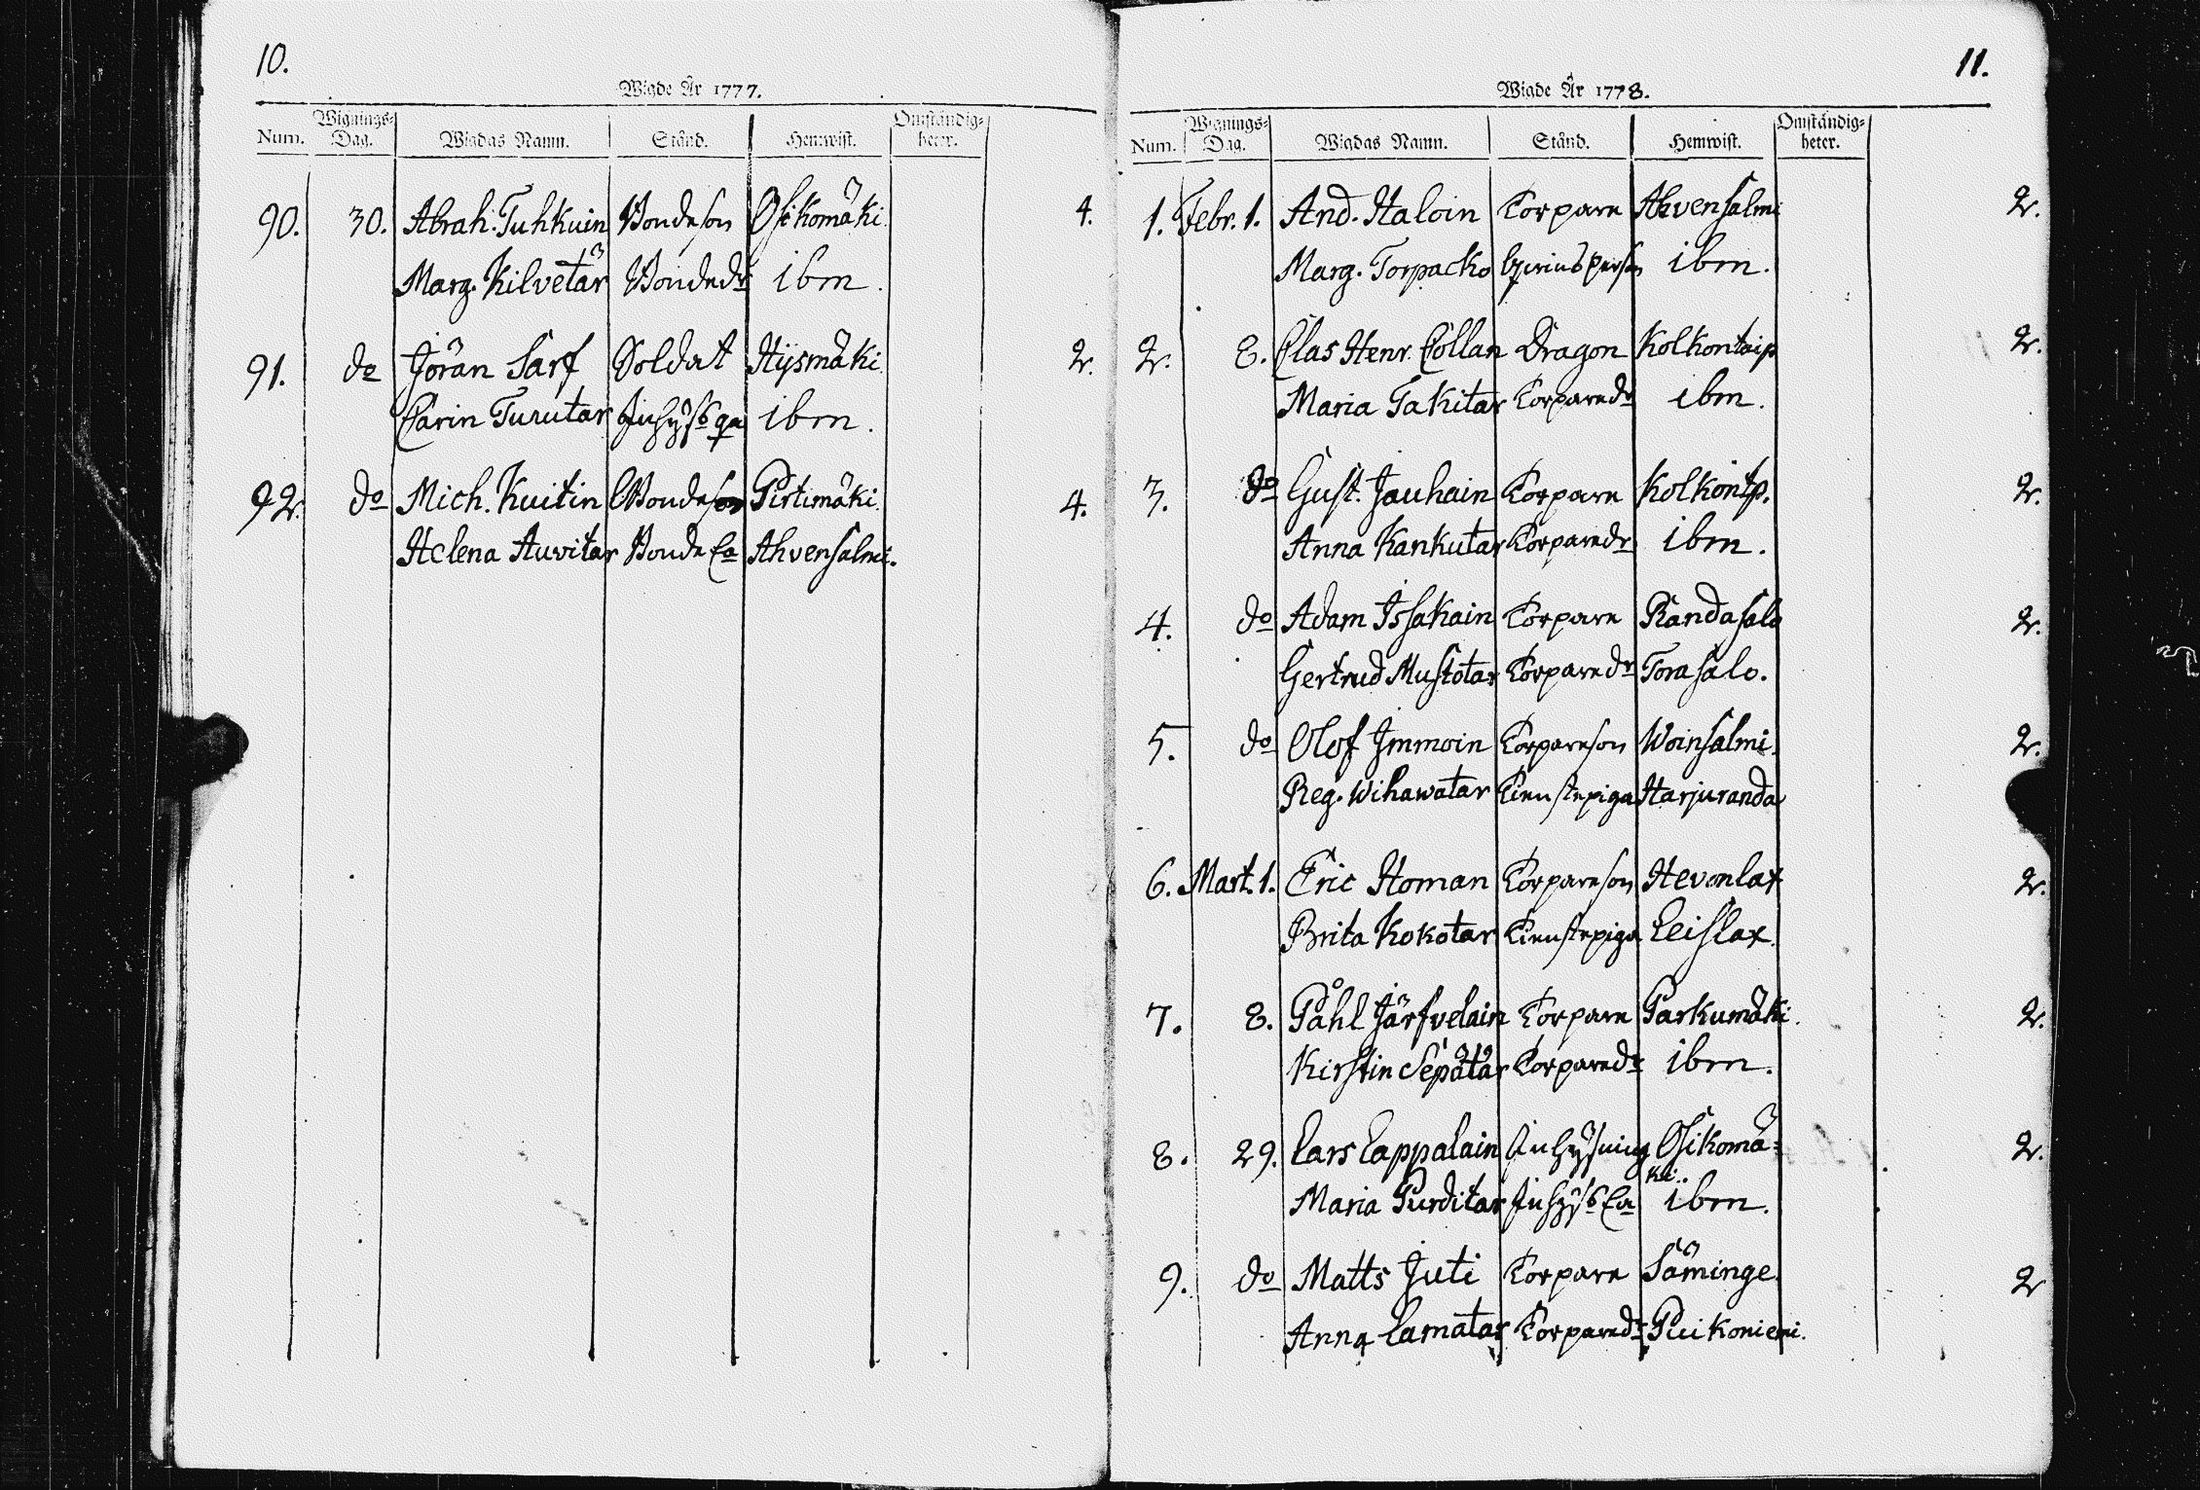 10.
Wigde År 1777.
Num. Wignings-Dag. Wigdas Namn. Stånd. Hemwist. Omständigheter.
90. 30. Abrah. Tuhkuin Bondeson Osikomäki. 4.
Marg. Kilvetär Bondedr ibm.
91. do Jöran Sarf Soldat Hysmäki. 2.
Carin Turutar Inhyspa ibm.
92. do Mich. Kuitin Bondeson Pirtimäki. 4.
Helena Auvitar Bonde Ea Ahvensalmi.
11.
Wigde År 1778.
Num. Wignings-Dag. Wigdas Namn. Stånd. Hemwist. Omständigheter.
1. Febr. 1. And. Haloin Torpare Ahvensalmi 2.
Marg. Torpacko ibm.
2. 8. Clas Henr. Collan Dragon Kolkontaip 2.
Maria Takitar Torparedr ibm.
3. do Gust. Jauhain Torpare Kolkontp. 2.
Anna Kankutar Torparedr ibm.
4. do Adam Issakain Torpare Randasalo 2.
Gertrud Mustotar Torparedr Torasalo.
5. do Olof Immoin Torpareson Woinsalmi. 2.
Reg. Wihawatar Tienstepiga Harjuranda
6. Mart. 1. Eric Homan Torpareson Hevonlax 2.
Brita Kokotar Tienstepiga Leislax.
7. 8. Påhl Järfvelain Torpare Parkumäki. 2.
Kirstin Sepätär Torparedr ibm.
8. 29. Lars Lappalain Inhysning Osikomä- 2.
ki.
Maria Purditar Inhys Ea ibm.
9. do Matts Juti Torpare Säminge. 2
Anna Lamatar Torparedr Puikoniemi.